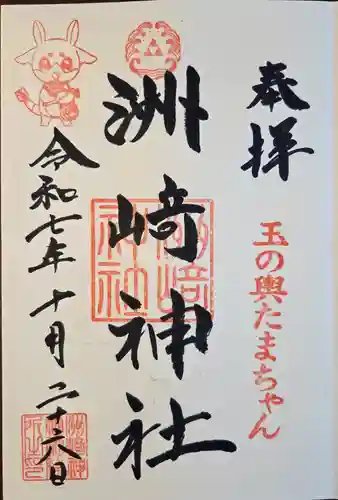 奉拝
玉の輿たまちゃん
洲崎神社
洲崎神社
令和七年十月二十六日